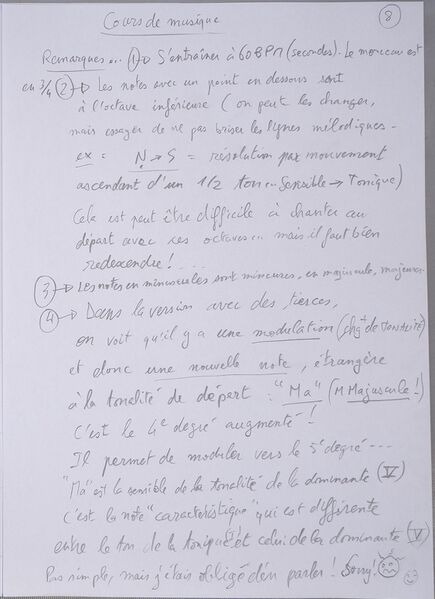 Cours de musique
8
Remarques... ① → S'entraîner à 60 BPM (secondes). Le morceau est
en 3/4 ② → Les notes avec un point en dessous sont
à l'octave inférieure (on peut les changer,
mais essayer de ne pas briser les lignes mélodiques.
ex = Ṇ → S = résolution par mouvement
ascendant d'un 1/2 ton en Sensible → Tonique)
Cela est peut être difficile à chanter au
départ avec ces octaves mais il faut bien
redescendre !....
③ → Les notes en minuscules sont mineures, en majuscule, majeures.
④ → Dans la version avec des tierces,
on voit qu'il y a une modulation (chgt de tonalité)
et donc une nouvelle note, étrangère
à la tonalité de départ : "Ma" (M Majuscule !)
C'est le 4e degré augmenté !
Il permet de moduler vers le 5e degré ---
"Ma" est la sensible de la tonalité de la dominante (V)
C'est la note "caractéristique" qui est différente
entre le ton de la tonique (I) et celui de la dominante (V)
Pas simple, mais j'étais obligé d'en parler ! Sorry !